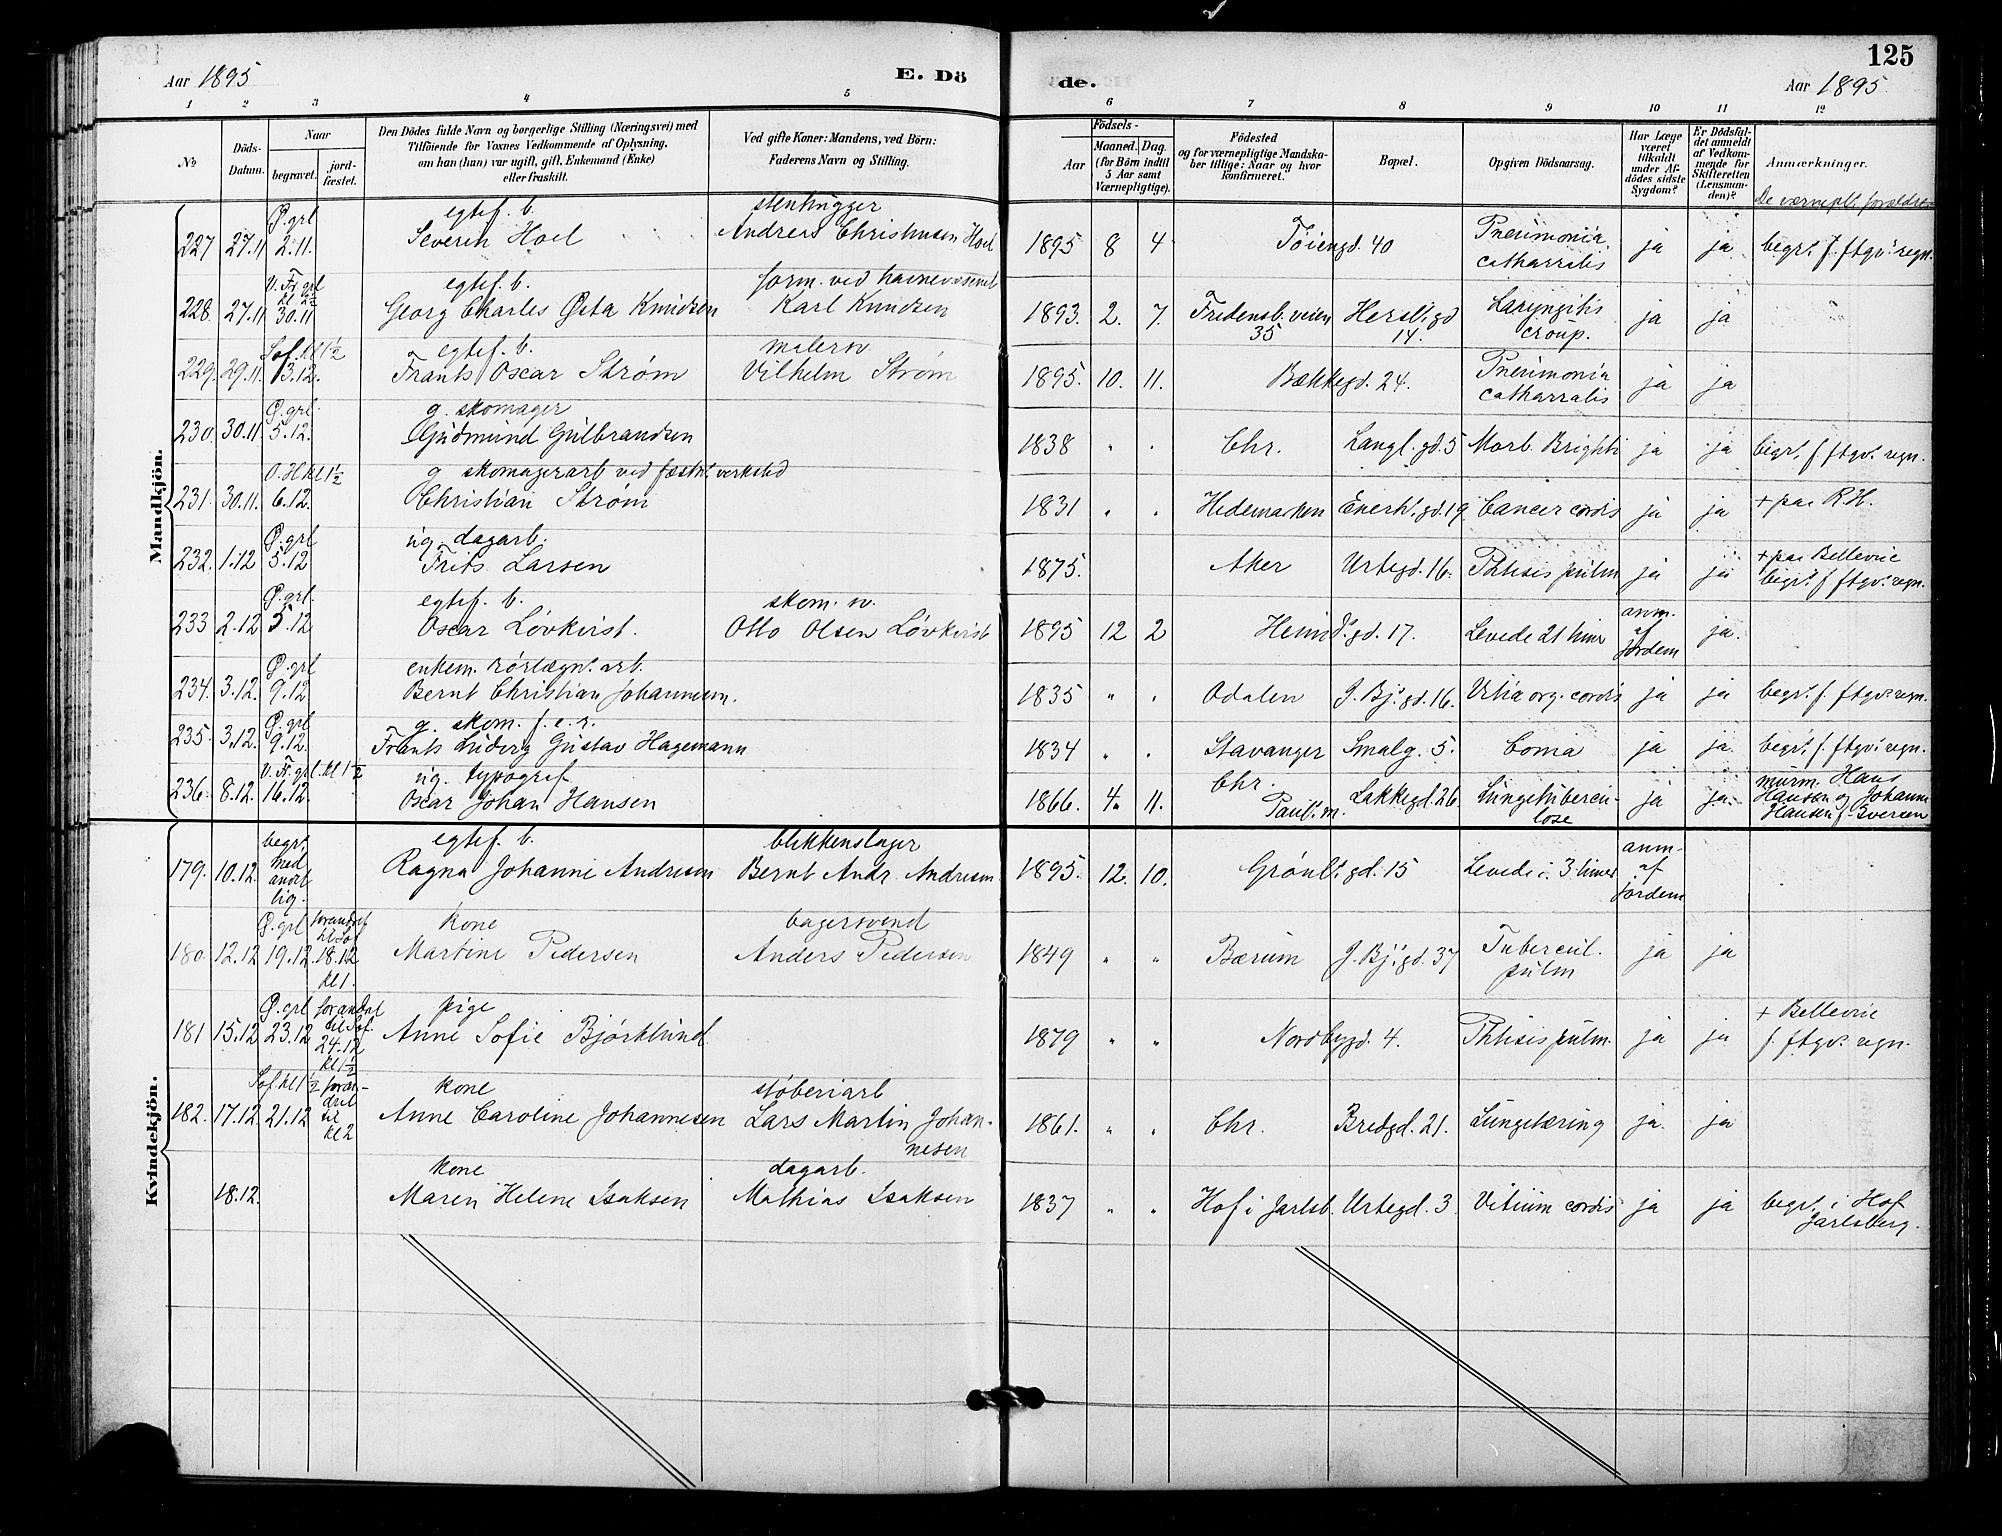 125
Aar 1895
E. Dö
de.
Aar 1895.
1 2 3 4 5 6 7 8 9 10 11 12
No
Döds-Datum.
Naar
begravet.
jord-fæstet.
Den Dödes fulde Navn og borgerlige Stilling (Næringsvei) med
Tilföiende for Voxnes Vedkommende af Oplysning,
om han (hun) var ugift, gift, Enkemand (Enke)
eller fraskilt.
Ved gifte Koner: Mandens, ved Börn:
Faderens Navn og Stilling.
Födsels-
Aar
Maaned. Dag.
(for Börn indtil
5 Aar samt
Værnepligtige).
Födested
og for værnepligtige Mandska-
ber tillige: Naar og hvor
konfirmeret.
Bopæl.
Opgiven Dödsaarsag.
Har Læge
været
tilkaldt
under Af-
dödes sidste
Sygdom?
Er Dödsfal-
det anmeldt
af Vedkom-
mende for
Skifteretten
(Lensman-
den)?
Anmærkninger.
De værnepl. forældre
Mandkjön.
Ø. grl egtef. b. stenhugger
227 27.11 2.11. Severin Hoel Andreas Christiansen Hoel 1895 8 4 Töiengd. 40 Pneumonia catharralis ja ja begr. f. ftgv. regn.
V. Fr. grl kl 2½ egtef. b. form. ved havnevæsenet
228. 27.11 30.11 Georg Charles Østa Knudsen Karl Knudsen 1893. 2. 7. Fredensb. veien 35 Hersl. gd 14. Laryngitis croup. ja ja
Sof. kl 1½ egtef. b. malersv.
229. 29.11. 3.12. Frants Oscar Strøm Vilhelm Strøm 1895. 10. 11. Bækkegd. 24. Pneumonia catharralis ja ja
Ø. grl. g. skomager
230. 30.11. 5.12. Gudmund Gulbrandsen 1838 " " Chr. Langl. gd. 5 Morb. Brighti ja ja begr. f ftgv. regn.
O. H kl 1½ g skomagerarb ved fæstn. verksted
231. 30.11. 6.12. Christian Strøm 1831 " " Hedemarken Enerh. gd. 19 Cancer cordis ja ja + paa R.H.
Ø. grl ug. dagarb.
232. 1.12 5.12 Frits Larsen 1875. Aker Urtegd. 16. Phtisis pulm ja ja + paa Bellevue begr. f ftgv. regn.
Ø. grl. egtef. b. skom. sv.
233 2.12 5.12 Oscar Lövkvist. Otto Olsen Lövkvist 1895 12 2 Heimd. gd. 17. Levede 21 timer anm. af Jordem ja.
Ø. grl enkem. rörlægn. arb.
234. 3.12. 9.12 Bernt Christian Johannesen. 1835 " " Odalen J. Bj. gd. 16. Vitia org. cordis ja ja begr. f. ftgv. regn.
Ø. grl g. skom. f. e. r.
235. 3.12. 9.12. Frants Ludvig Gustav Hagemann 1834 " " Stavanger Smalg. 5. Coma ja ja. begr. f. ftgv. regn.
V. Fr. grl. kl 1½ ug. typograf
236. 8.12. 16.12. Oscar Johan Hansen 1866. 4. 11. Chr. Paul. m. Lakkegd. 26 Lungetubercu-lose ja ja. murm. Hans Hansen og Johanne Hansen f. Iversen
Kvindekjön.
begr. med andet lig. egtef. b. blikkenslager
179. 10.12. Ragna Johanne Andresen Bernt Andr. Andresen 1895. 12. 10. Grönl. gd. 15 Levede i 3 timer anm. af Jordem
Ø. grl forandret til Sof kone bagersvend
180. 12.12 19.12 18.12 kl 1. Martine Pedersen Anders Pedersen 1849 " " Bærum J. Bj. gd. 37 Tubercul. pulm ja ja
Ø. grl forandret til Sof. pige
181 15.12 23.12 24.12 kl 1½ Anne Sofie Bjørklund 1879 " " Nordbygd. 4. Phtisis pulm. ja ja + Bellevue f. ftgv. regn.
Sof kl 1½ foran-dret til kl 2 kone støberiarb
182. 17.12. 21.12 Anne Caroline Johannesen Lars Martin Johan-nesen 1861. " " Chr. Bredgd. 21. Lungetæring ja. ja
kone dagarb.
18.12. Maren Helene Isaksen Mathias Isaksen 1837 " " Hof i Jarlsb. Urtegd. 3 Vitium cordis ja ja begr. i Hof Jarlsberg.